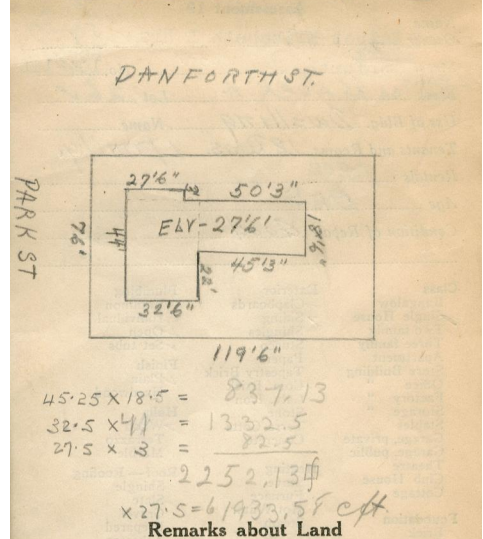 DANFORTH ST.
PARK ST
76'
27'6"
3'
50'3"
44'
ELV-27'6'
18'6"
45'3"
22'
32'6"
119'6"
45.25 X 18.5 = 837.13
32.5 X 41 = 1332.5
27.5 X 3 = 82.5
2252.13
X 27.5 = 61933.58 cft.
Remarks about Land